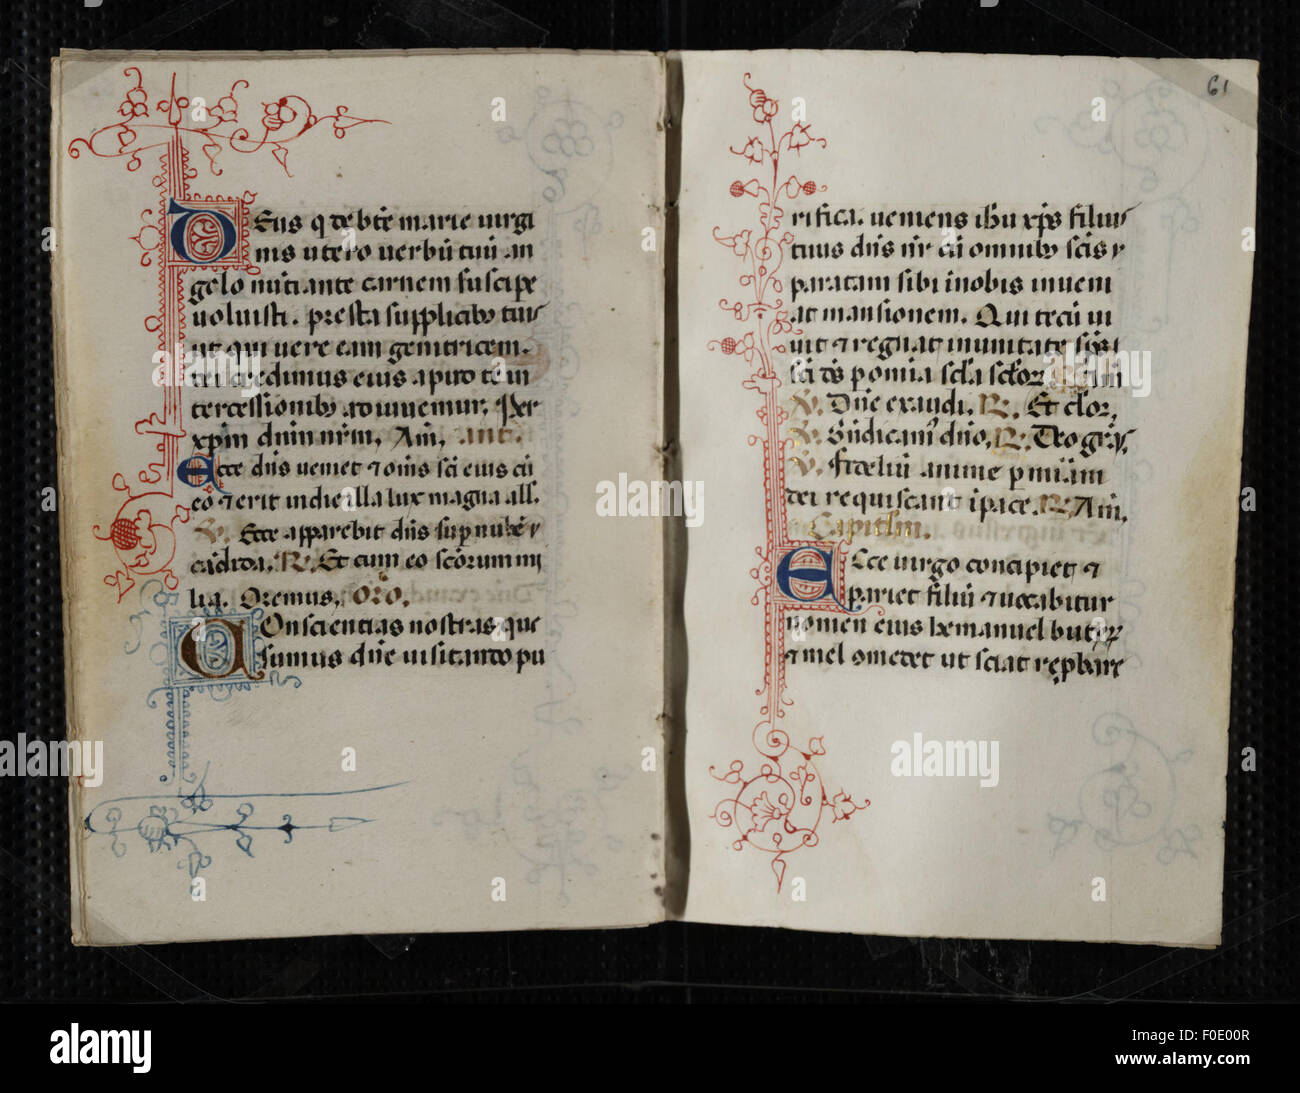 DEus q de bt̄e marie uirgi
nis utero uerbū tuū an
gelo nūtiante carnem suscipe
uoluisti. presta supplicib; tuis
ut qui uere eam genitricem.
dei credimus eius apud te in
tercessionib; adiuuemur. Per
xp̄m dnm nr̄m. Am̄. ant.
Ecce dn̄s ueniet ⁊ om̄s sc̄i eius cū
eo ⁊ erit in die illa lux magna all̄.
V. Ecce apparebit dn̄s sup nubē
cādida. R. Et cum eo sc̄orum mi
lia. Oremus. Orō.
COnscientias nostras que
sumus dn̄e uisitando pu
61
rifica. ueniens ih̄u xp̄s filiu⁹
tuus dn̄s nr̄ cū omnib; sc̄is
paratam sibi inobis inueni
at mansionem. Qui tecū ui
uit ⁊ regnat inunitate sp̄s
sc̄i d̄s p om̄ia sc̄la sc̄lor. R. Am̄
V. Dn̄e exaudi. R. Et clor.
V. Bn̄dicam⁹ dn̄o. R. Deo grās.
V. Fideliū anime p mīam
dei requiscant ī pace. R. Am̄.
Capitlm.
ECce uirgo concipiet ⁊
pariet filiū ⁊ uocabitur
nomen eius hemanuel butyr
⁊ mel comedet ut sciat reprobare
alamy
Image ID: F0E00R
www.alamy.com